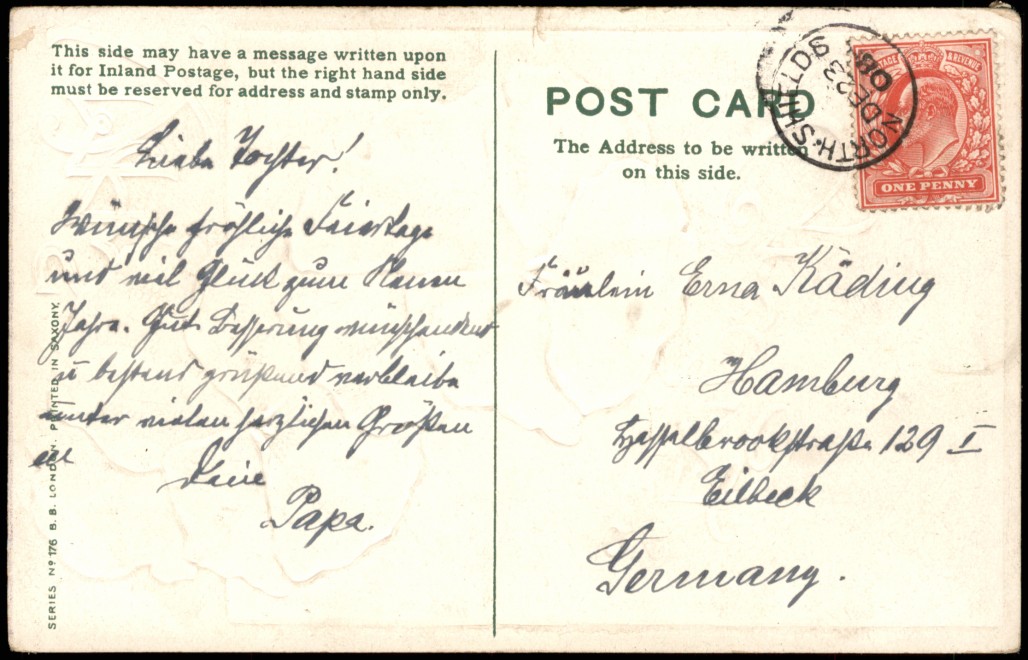 This side may have a message written upon
it for Inland Postage, but the right hand side
must be reserved for address and stamp only.
Liebe Tochter!
Wünsche fröhliche Feiertage
und viel Glück zum Neuen
Jahre. Gute Besserung wünschend
u bestens grüßend verbleibe
unter vielen herzlichen Grüßen
Deine
Papa.
SERIES Nº 176 B. B. LONDON. PRINTED IN SAXONY.
POST CARD
The Address to be written
on this side.
NORTH·SHIELDS
DE 23
08
POSTAGE & REVENUE
ONE PENNY
Fräulein Erna Käding
Hamburg
Hasselbrookstraße 129 I
Eilbeck
Germany.